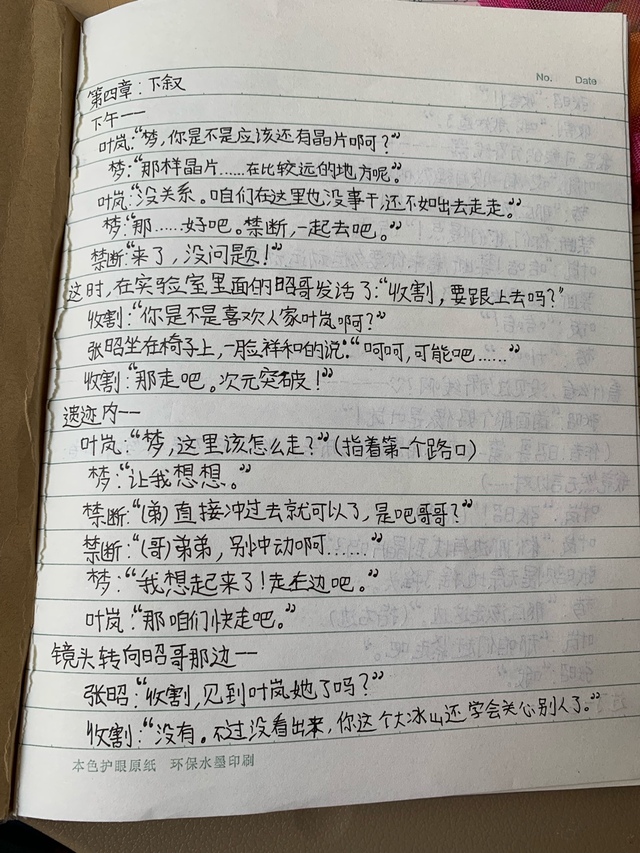 No. Date
第四章：下叙
下午——
叶岚：“梦，你是不是应该还有晶片啊？”
梦：“那样晶片……在比较远的地方呢。”
叶岚：“没关系。咱们在这里也没事干，还不如出去走走。”
梦：“那……好吧。禁断，一起去吧。”
禁断：“来了，没问题！”
这时，在实验室里面的昭哥发话了：“收割，要跟上去吗？”
收割：“你是不是喜欢人家叶岚啊？”
张昭坐在椅子上，一脸祥和的说：“呵呵，可能吧……”
收割：“那走吧。次元突破！”
遗迹内——
叶岚：“梦，这里该怎么走？”(指着第一个路口)
梦：“让我想想。”
禁断：“(弟)直接冲过去就可以了，是吧哥哥？”
禁断：“(哥)弟弟，别冲动啊……”
梦：“我想起来了！走在边吧。”
叶岚：“那咱们快走吧。”
镜头转向昭哥那边——
张昭：“收割，见到叶岚她了吗？”
收割：“没有。不过没看出来，你这个大冰山还学会关心别人了。”
本色护眼原纸 环保水墨印刷